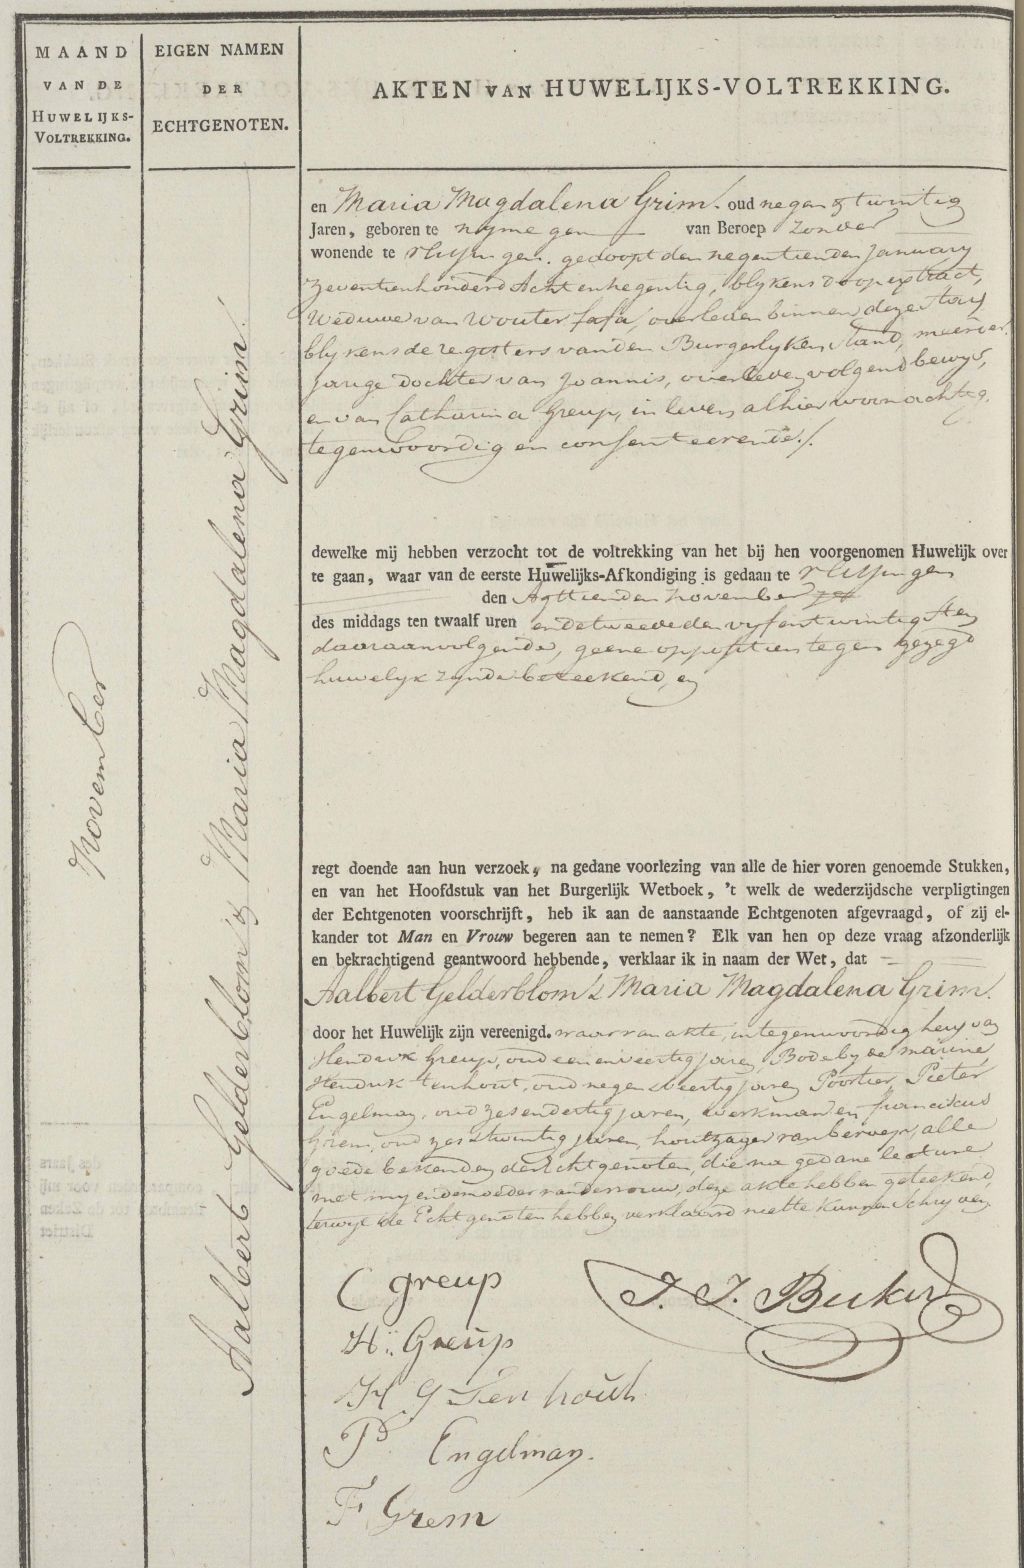 MAAND
VAN DE
HUWELIJKS-
VOLTREKKING.
EIGEN NAMEN
DER
ECHTGENOTEN.
AKTEN VAN HUWELIJKS-VOLTREKKING.
November
Aalbert Gelderblom & Maria Magdalena Grim.
en Maria Magdalena Grim. oud negen & twintig
Jaren, geboren te nymegen van Beroep zonder
wonende te vlissingen. gedoopt den negentienden January
zeventienhonderd Acht en negentig, blykens doop extract,
Weduwe van Wouter overleden binnen deze stad
blykens de registers van den Burgerlyken stand, meerder
jarige dochter van Joannis, overleden volgend bewys,
en van Catharina Greup, in leven alhier woonachtig
tegenwoordig en consenteerende./.
dewelke mij hebben verzocht tot de voltrekking van het bij hen voorgenomen Huwelijk over
te gaan, waar van de eerste Huwelijks-Afkondiging is gedaan te vlissingen
den Agttienden November
des middags ten twaalf uren en de tweede den vyfentwintigsten
daaraanvolgende, geene oppositien tegen gezegd
huwelyk zynde beteekend, en
regt doende aan hun verzoek, na gedane voorlezing van alle de hier voren genoemde Stukken,
en van het Hoofdstuk van het Burgerlijk Wetboek, 't welk de wederzijdsche verpligtingen
der Echtgenoten voorschrijft, heb ik aan de aanstaande Echtgenoten afgevraagd, of zij el-
kander tot Man en Vrouw begeren aan te nemen? Elk van hen op deze vraag afzonderlijk
en bekrachtigend geantwoord hebbende, verklaar ik in naam der Wet, dat
Aalbert Gelderblom & Maria Magdalena Grim.
door het Huwelijk zijn vereenigd. waarvan akte, in tegenwoordigheyd van
Hendrik Greup, oud een en veertig jaren, Bode by de marine,
Hendrik tenhout, oud negen & veertig jaren Poortier, Pieter
Engelman, oud zesendertig jaren, werkman en franciscus
Grem, oud zes & twintig jaren, houtzager van beroep, alle
goede bekenden der Echtgenoten, die na gedane lecture
met my en de moeder van de vrouw, deze akte hebben geteekend,
terwyl de Echtgenoten hebben verklaard niet te kunnen schryven
C greup
J. J. Beker
H: Greup
H G Ten hout
P Engelman.
F Grem